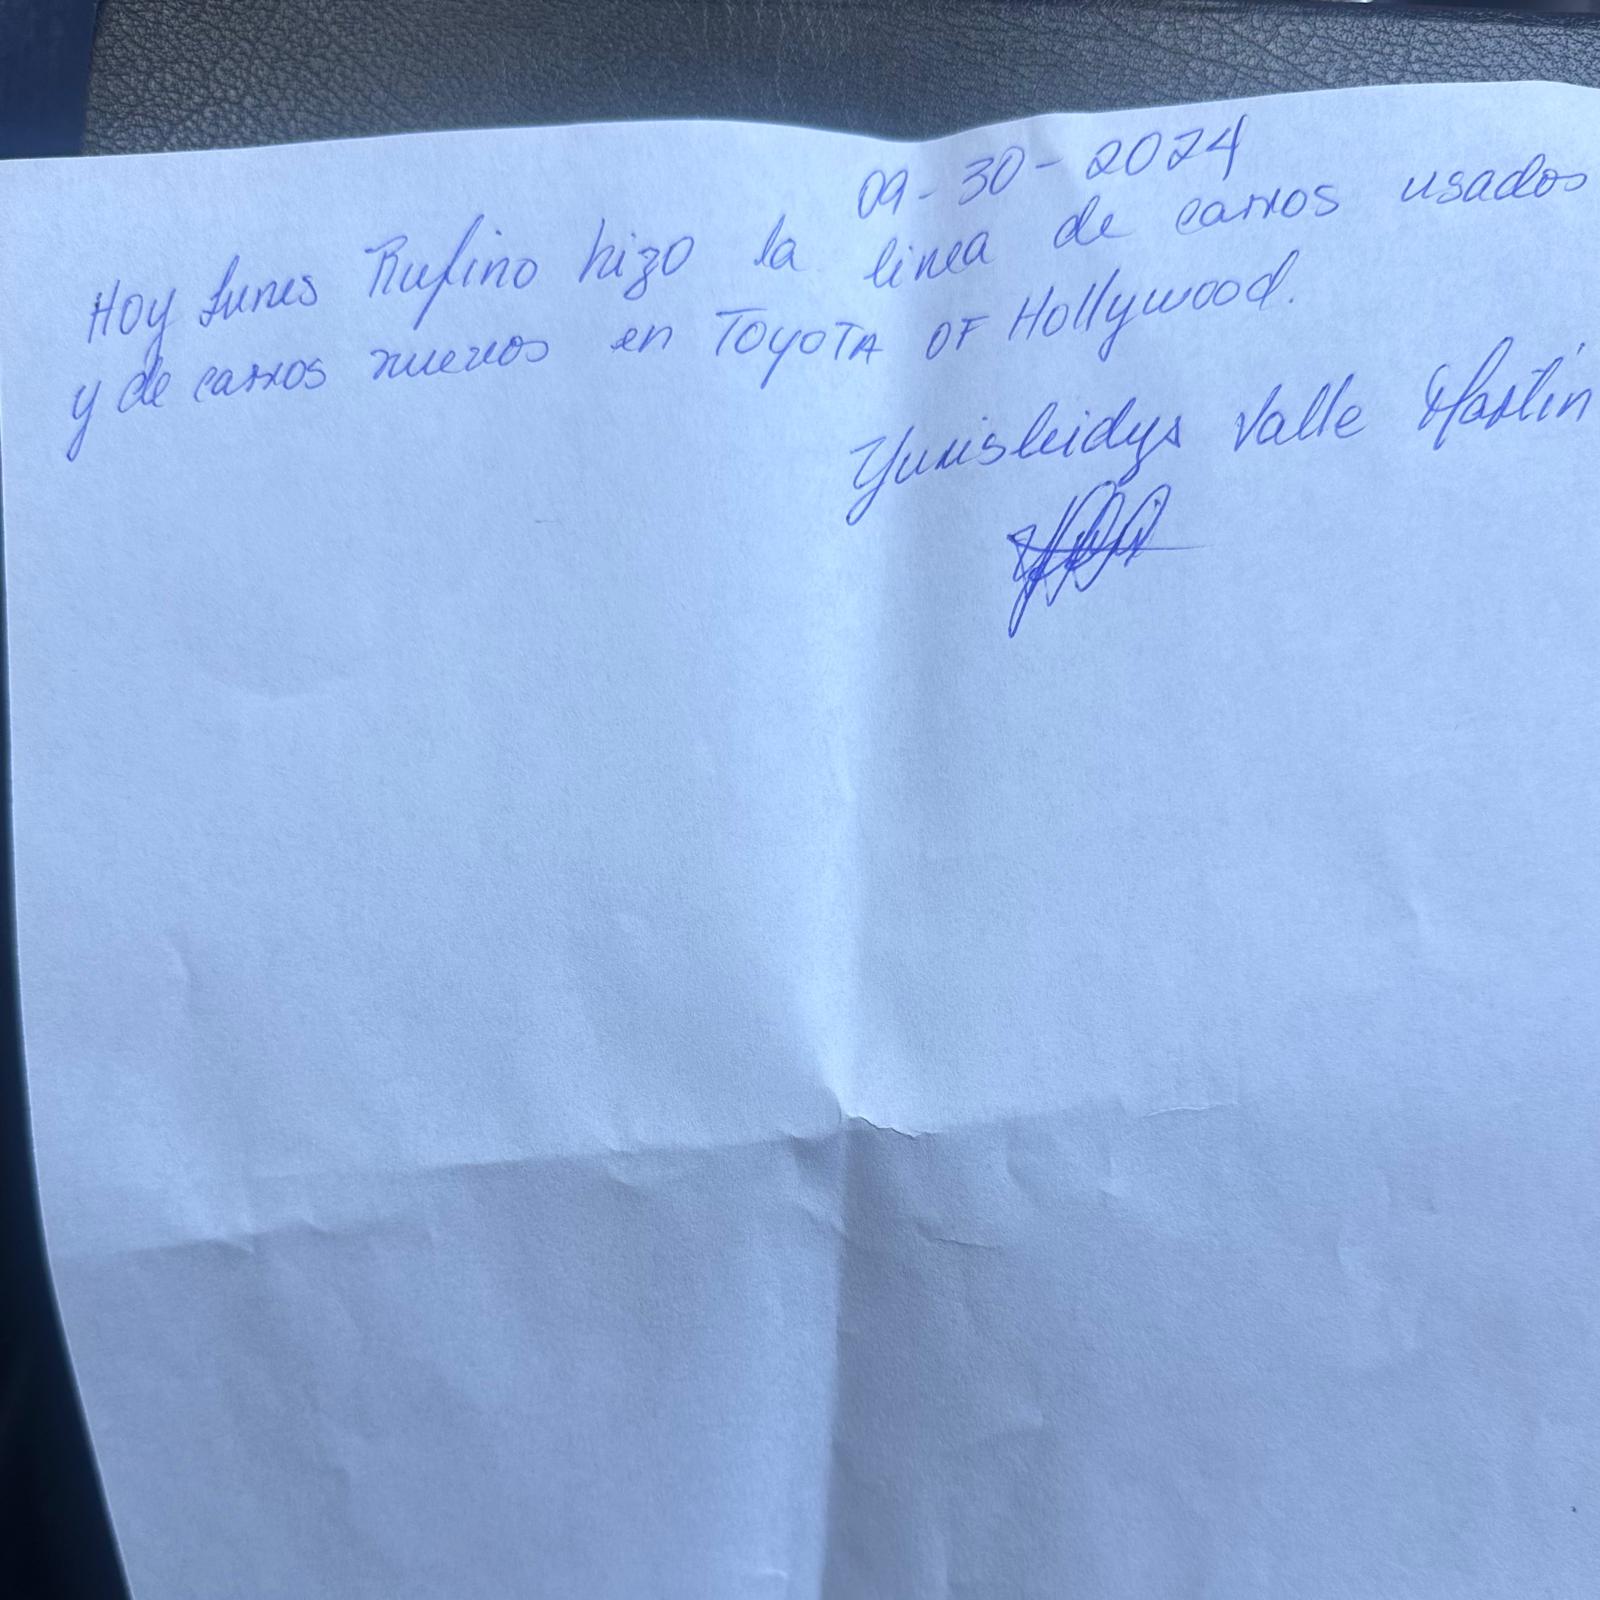 09-30-2024
Hoy Lunes Rufino hizo la linea de carros usados
y de carros nuevos en TOYOTA OF Hollywood.
Yurisleidys Valle Martín